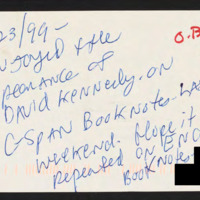 23/99-
njoyed the
pearance of
David Kennedy. on
C-SPAN Booknotes. LAS
weekend. Hope it
repeated on ENC
BookNotes
O.B